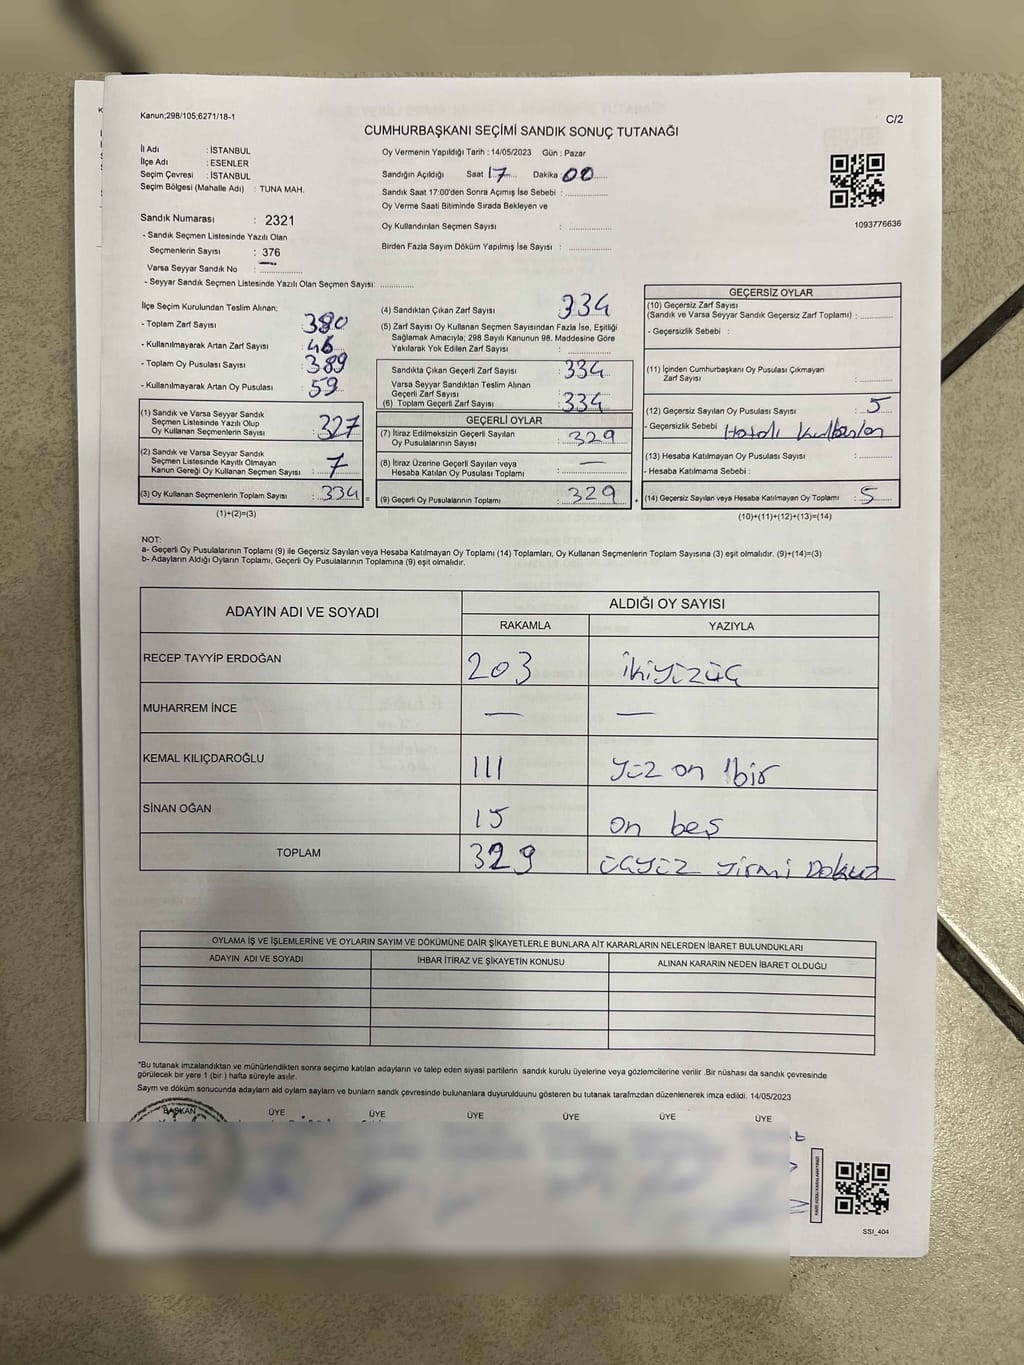 Kanun;298/105;6271/18-1
C/2
CUMHURBAŞKANI SEÇİMİ SANDIK SONUÇ TUTANAĞI
İl Adı : İSTANBUL
İlçe Adı : ESENLER
Seçim Çevresi : İSTANBUL
Seçim Bölgesi (Mahalle Adı) : TUNA MAH.
Sandık Numarası : 2321
- Sandık Seçmen Listesinde Yazılı Olan
Seçmenlerin Sayısı : 376
Varsa Seyyar Sandık No : —
- Seyyar Sandık Seçmen Listesinde Yazılı Olan Seçmen Sayısı:
Oy Vermenin Yapıldığı Tarih : 14/05/2023 Gün : Pazar
Sandığın Açıldığı Saat 17 Dakika 00
Sandık Saat 17:00'den Sonra Açımış İse Sebebi :
Oy Verme Saati Bitiminde Sırada Bekleyen ve
Oy Kullandırılan Seçmen Sayısı :
Birden Fazla Sayım Döküm Yapılmış İse Sayısı :
1093776636
İlçe Seçim Kurulundan Teslim Alınan;
- Toplam Zarf Sayısı : 380
- Kullanılmayarak Artan Zarf Sayısı : 46
- Toplam Oy Pusulası Sayısı : 389
- Kullanılmayarak Artan Oy Pusulası : 59
(1) Sandık ve Varsa Seyyar Sandık
Seçmen Listesinde Yazılı Olup
Oy Kullanan Seçmenlerin Sayısı : 327
(2) Sandık ve Varsa Seyyar Sandık
Seçmen Listesinde Kayıtlı Olmayan
Kanun Gereği Oy Kullanan Seçmen Sayısı : 7
(3) Oy Kullanan Seçmenlerin Toplam Sayısı : 334 =
(1)+(2)=(3)
(4) Sandıktan Çıkan Zarf Sayısı : 334
(5) Zarf Sayısı Oy Kullanan Seçmen Sayısından Fazla İse, Eşitliği
Sağlamak Amacıyla; 298 Sayılı Kanunun 98. Maddesine Göre
Yakılarak Yok Edilen Zarf Sayısı :
Sandıkta Çıkan Geçerli Zarf Sayısı : 334
Varsa Seyyar Sandıktan Teslim Alınan
Geçerli Zarf Sayısı :
(6) Toplam Geçerli Zarf Sayısı : 334
GEÇERLİ OYLAR
(7) İtiraz Edilmeksizin Geçerli Sayılan
Oy Pusulalarının Sayısı : 329
(8) İtiraz Üzerine Geçerli Sayılan veya
Hesaba Katılan Oy Pusulası Toplamı : —
(9) Geçerli Oy Pusulalarının Toplamı : 329 +
GEÇERSİZ OYLAR
(10) Geçersiz Zarf Sayısı
(Sandık ve Varsa Seyyar Sandık Geçersiz Zarf Toplamı) :
- Geçersizlik Sebebi :
(11) İçinden Cumhurbaşkanı Oy Pusulası Çıkmayan
Zarf Sayısı :
(12) Geçersiz Sayılan Oy Pusulası Sayısı : 5
- Geçersizlik Sebebi : Hatalı
(13) Hesaba Katılmayan Oy Pusulası Sayısı :
- Hesaba Katılmama Sebebi :
(14) Geçersiz Sayılan veya Hesaba Katılmayan Oy Toplamı : 5
(10)+(11)+(12)+(13)=(14)
NOT:
a- Geçerli Oy Pusulalarının Toplamı (9) ile Geçersiz Sayılan veya Hesaba Katılmayan Oy Toplamı (14) Toplamları, Oy Kullanan Seçmenlerin Toplam Sayısına (3) eşit olmalıdır. (9)+(14)=(3)
b- Adayların Aldığı Oyların Toplamı, Geçerli Oy Pusulalarının Toplamına (9) eşit olmalıdır.
ADAYIN ADI VE SOYADI
ALDIĞI OY SAYISI
RAKAMLA YAZIYLA
RECEP TAYYİP ERDOĞAN 203 ikiyüzüç
MUHARREM İNCE — —
KEMAL KILIÇDAROĞLU 111 yüz on bir
SİNAN OĞAN 15 on beş
TOPLAM 329 üçyüz yirmi Dokuz
OYLAMA İŞ VE İŞLEMLERİNE VE OYLARIN SAYIM VE DÖKÜMÜNE DAİR ŞİKAYETLERLE BUNLARA AİT KARARLARIN NELERDEN İBARET BULUNDUKLARI
ADAYIN ADI VE SOYADI İHBAR İTİRAZ VE ŞİKAYETİN KONUSU ALINAN KARARIN NEDEN İBARET OLDUĞU
*Bu tutanak imzalandıktan ve mühürlendikten sonra seçime katılan adayların ve talep eden siyasi partilerin sandık kurulu üyelerine veya gözlemcilerine verilir .Bir nüshası da sandık çevresinde
görülecek bir yere 1 (bir ) hafta süreyle asılır.
Sayım ve döküm sonucunda adayların aldı oyların sayıları ve bunların sandık çevresinde bulunanlara duyurulduğunu gösteren bu tutanak tarafımızdan düzenlenerek imza edildi. 14/05/2023
BAŞKAN ÜYE ÜYE ÜYE ÜYE ÜYE ÜYE
SSI_404